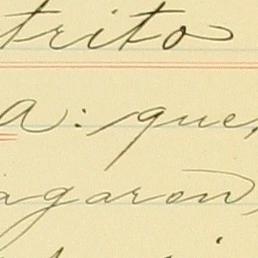 trito
a: que,
agaron,